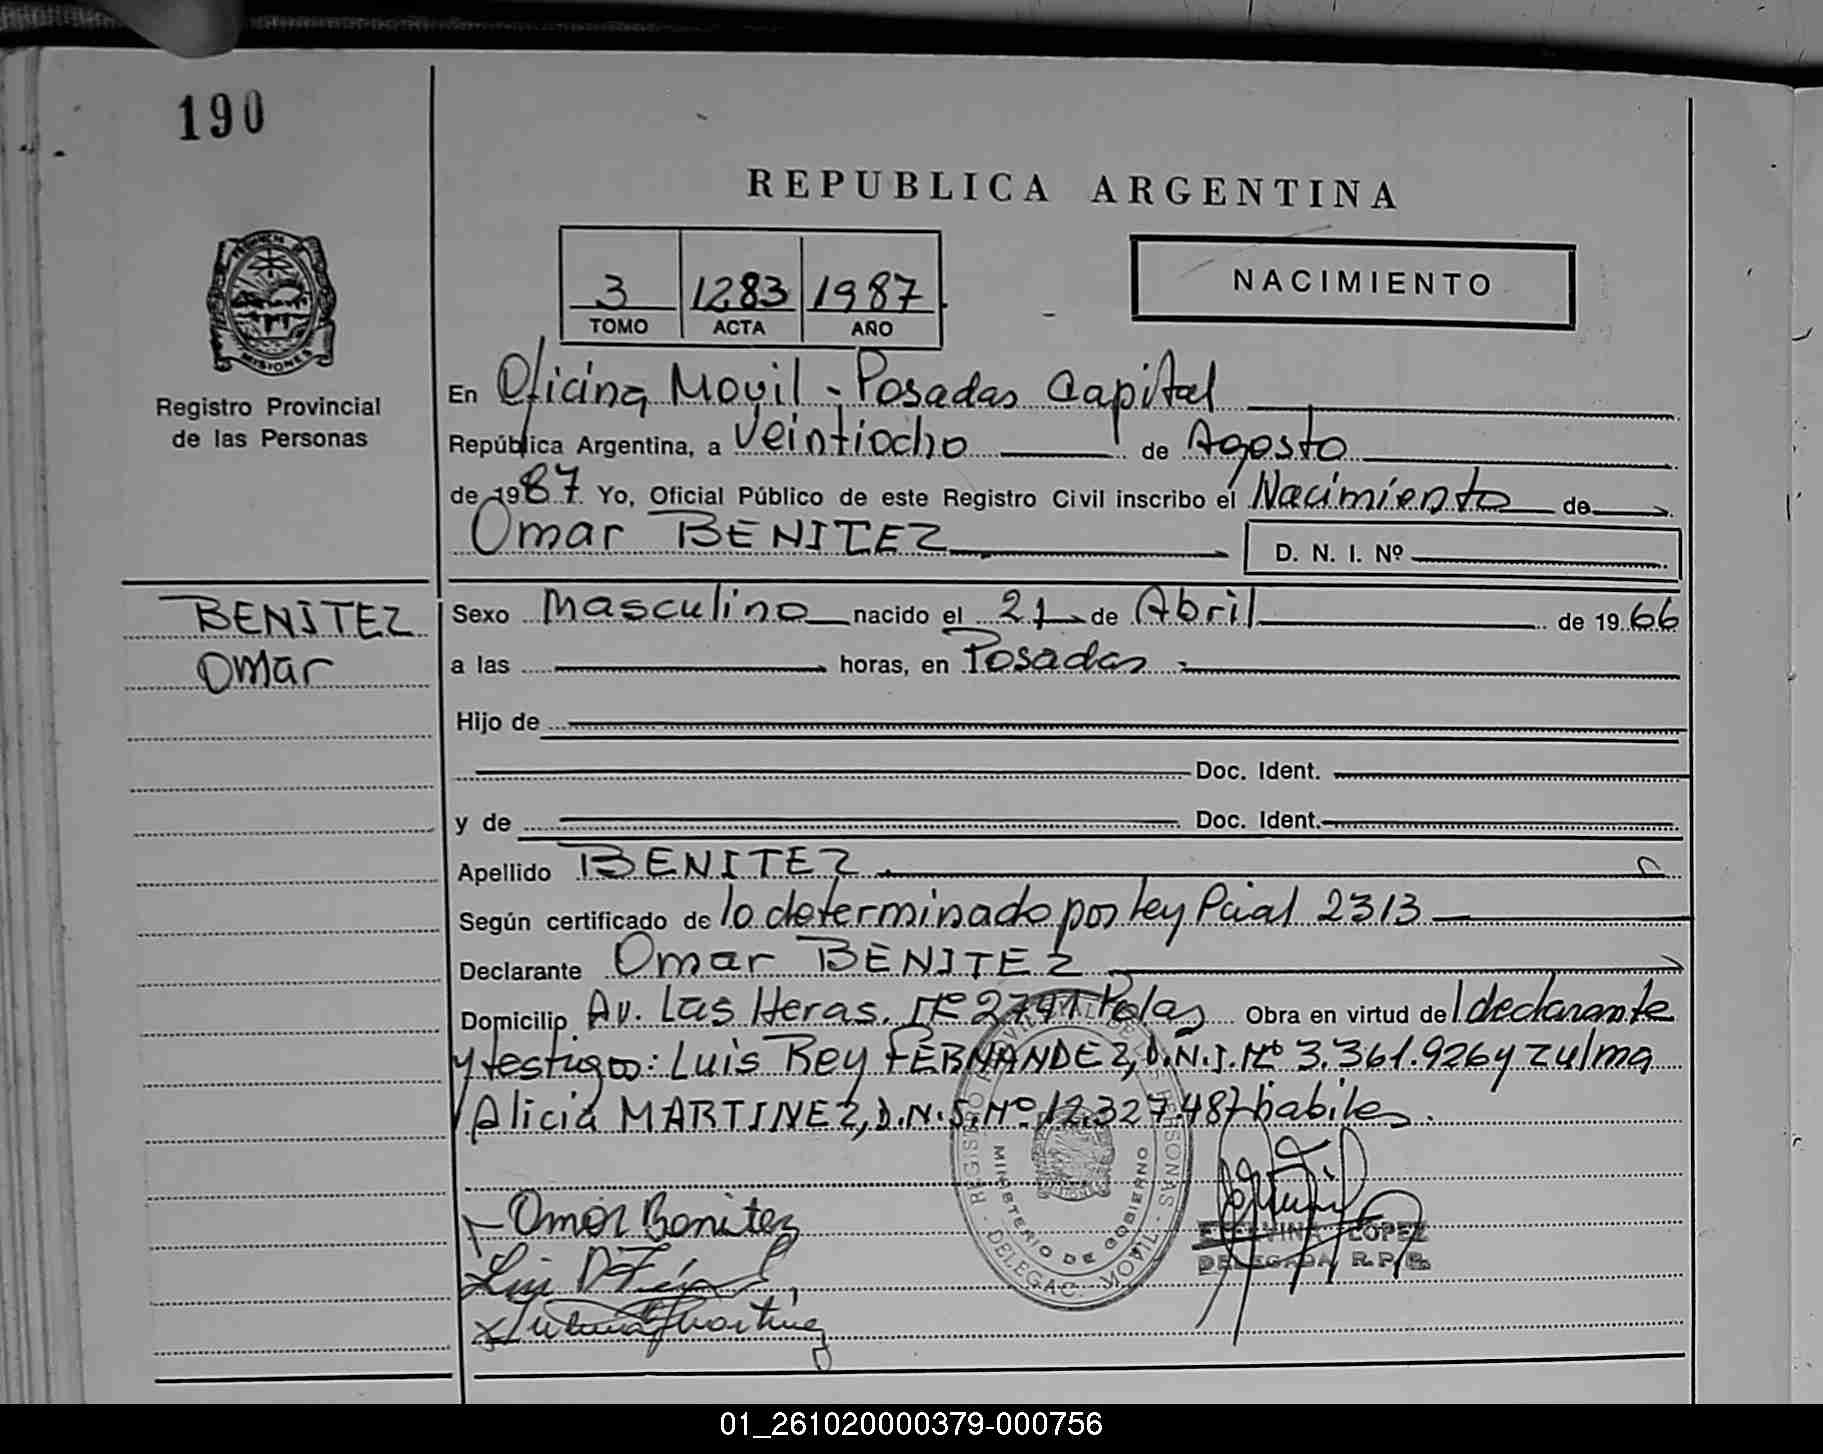 190
REPUBLICA ARGENTINA
3 1283 1987
TOMO ACTA AÑO
NACIMIENTO
PROVINCIA DE
MISIONES
Registro Provincial
de las Personas
En Oficina Movil - Posadas Capital
República Argentina, a Veintiocho de Agosto
de 1987 Yo, Oficial Público de este Registro Civil inscribo el Nacimiento de
Omar BENITEZ D. N. I. Nº
BENITEZ
Omar
Sexo Masculino nacido el 21 de Abril de 1966
a las horas, en Posadas
Hijo de
Doc. Ident.
y de Doc. Ident.
Apellido BENITEZ
Según certificado de lo determinado por Ley Pcial 2313
Declarante Omar BENITEZ
Domicilio Av. Las Heras. Nº 2791 Pdas Obra en virtud del declarante
y testigos: Luis Rey FERNANDEZ, D.N.I. Nº 3.361.926 y Zulma
Alicia MARTINEZ, D.N.I. Nº 12.327.487 habiles.
REGISTRO PROVINCIAL DE LAS PERSONAS - DELEGAC. MOVIL -
MINISTERIO DE GOBIERNO
Omar Benitez
LOPEZ
DELEGADA R.P.P.
01_261020000379-000756